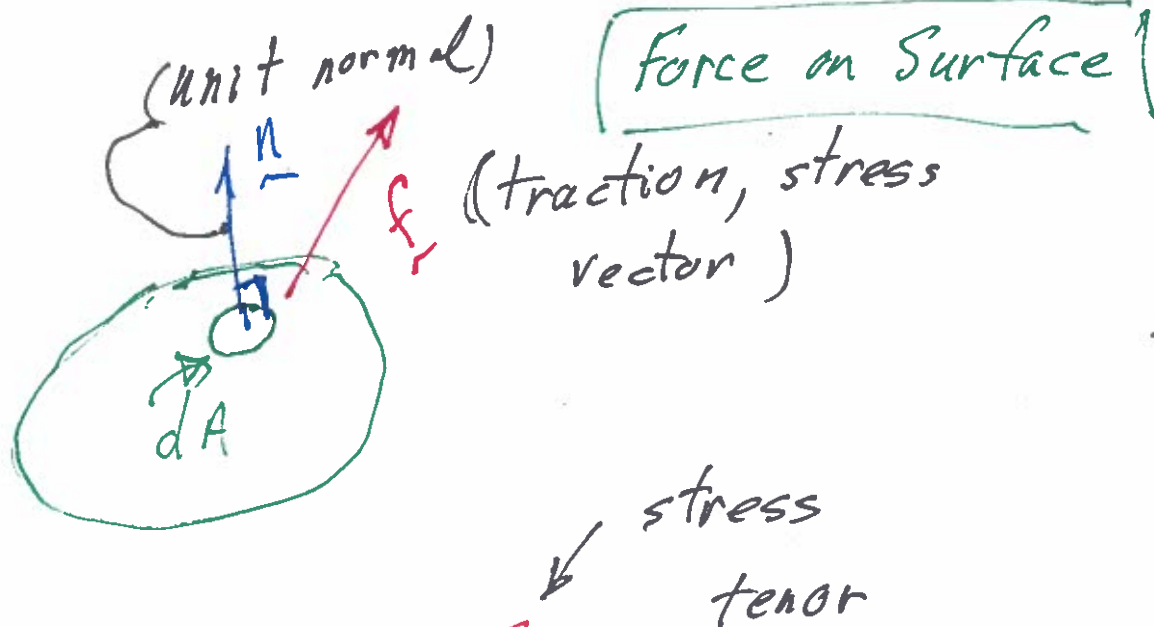 (unit normal)
Force on Surface
n
f (traction, stress
vector)
dA
stress
tenor